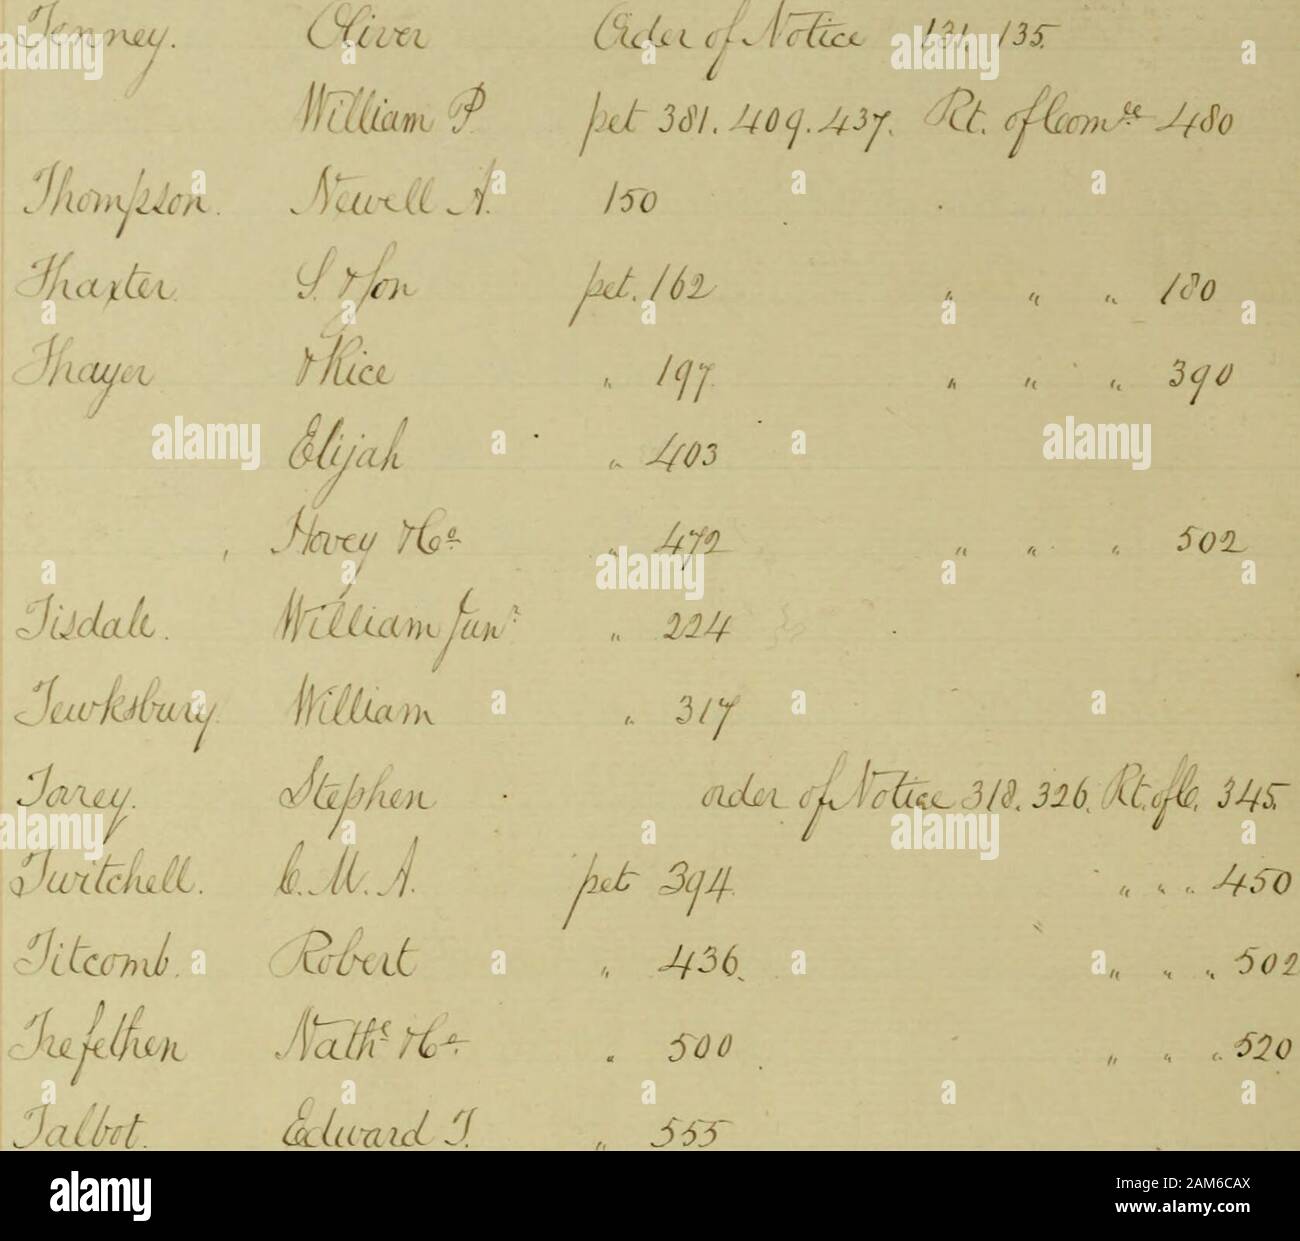 Tenney. Oliver Order of Notice 131. 135.
William P. pet 381. 409. 437. Rt. of Com^ee 480
Thompson. Newell A. 150
Thaxter. S. & Son pet. 162 " " " 180
Thayer & Rice " 197. " " " 390
Elijah " 403
Hovey & Co. " 472 " " " 502
Tisdale. William Jun^r " 224
Tewksbury. William " 317
Torrey. Stephen order of Notice 318. 326. Rt. of C. 345.
Twitchell. C. M. A. pet 394. " " " 450
Titcomb. Robert " 436. " " " 502
Trefethen Nath^l & Co. " 500 " " " 520
Talbot. Edward T. " 555
alamy
Image ID: 2AM6CAX
www.alamy.com